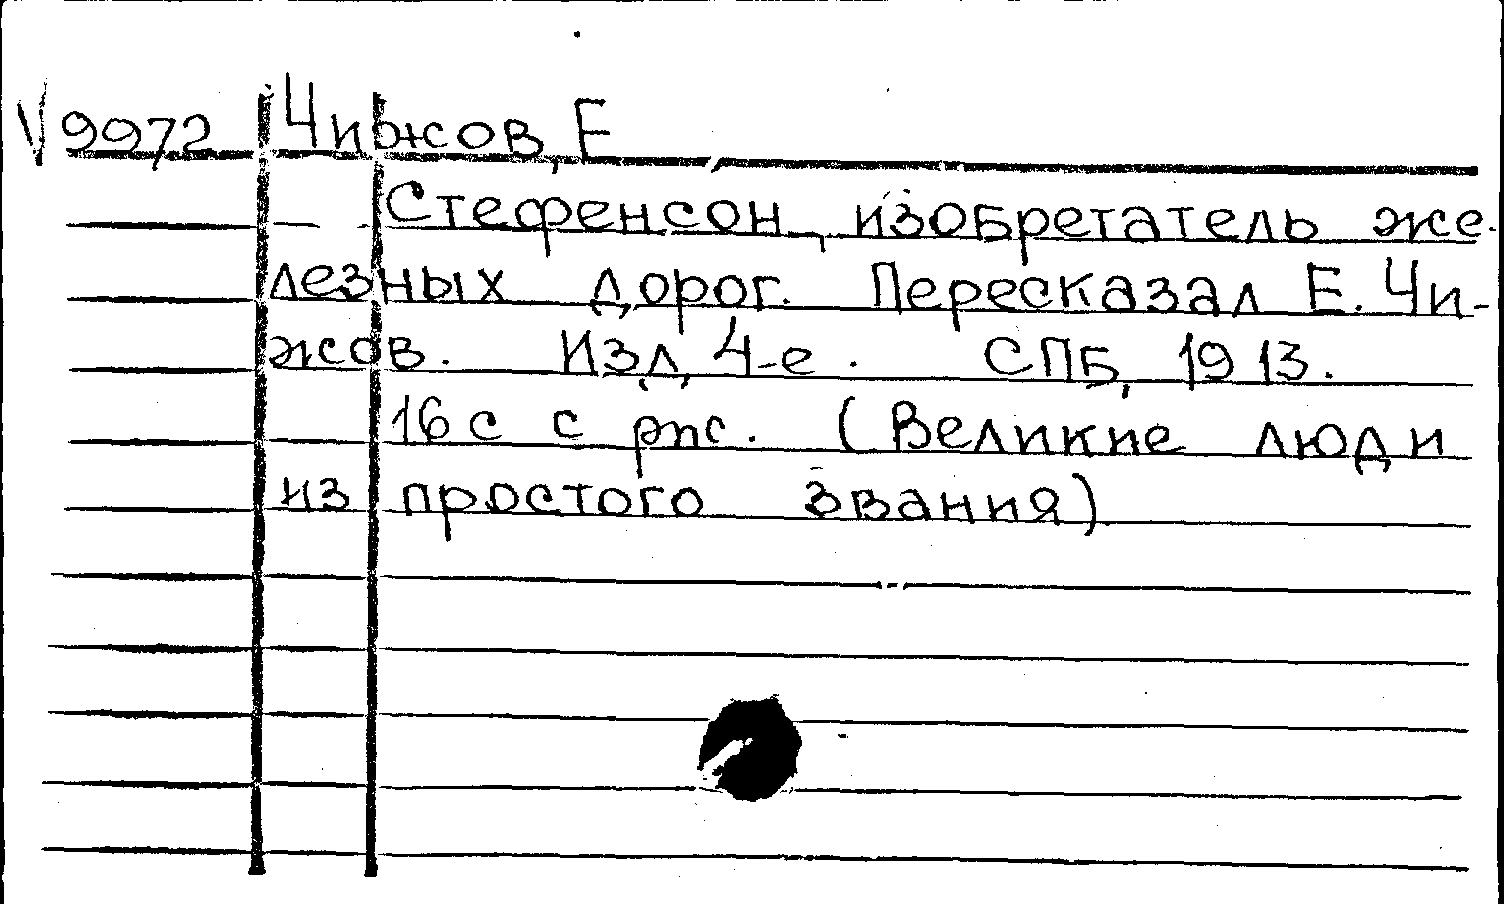 V 9972 Чижов, Е
Стефенсон, изобретатель же-
лезных дорог. Пересказал Е. Чи-
жов. Изд, 4-е. СПБ, 1913.
16 с с рис. (Великие люди
из простого звания)